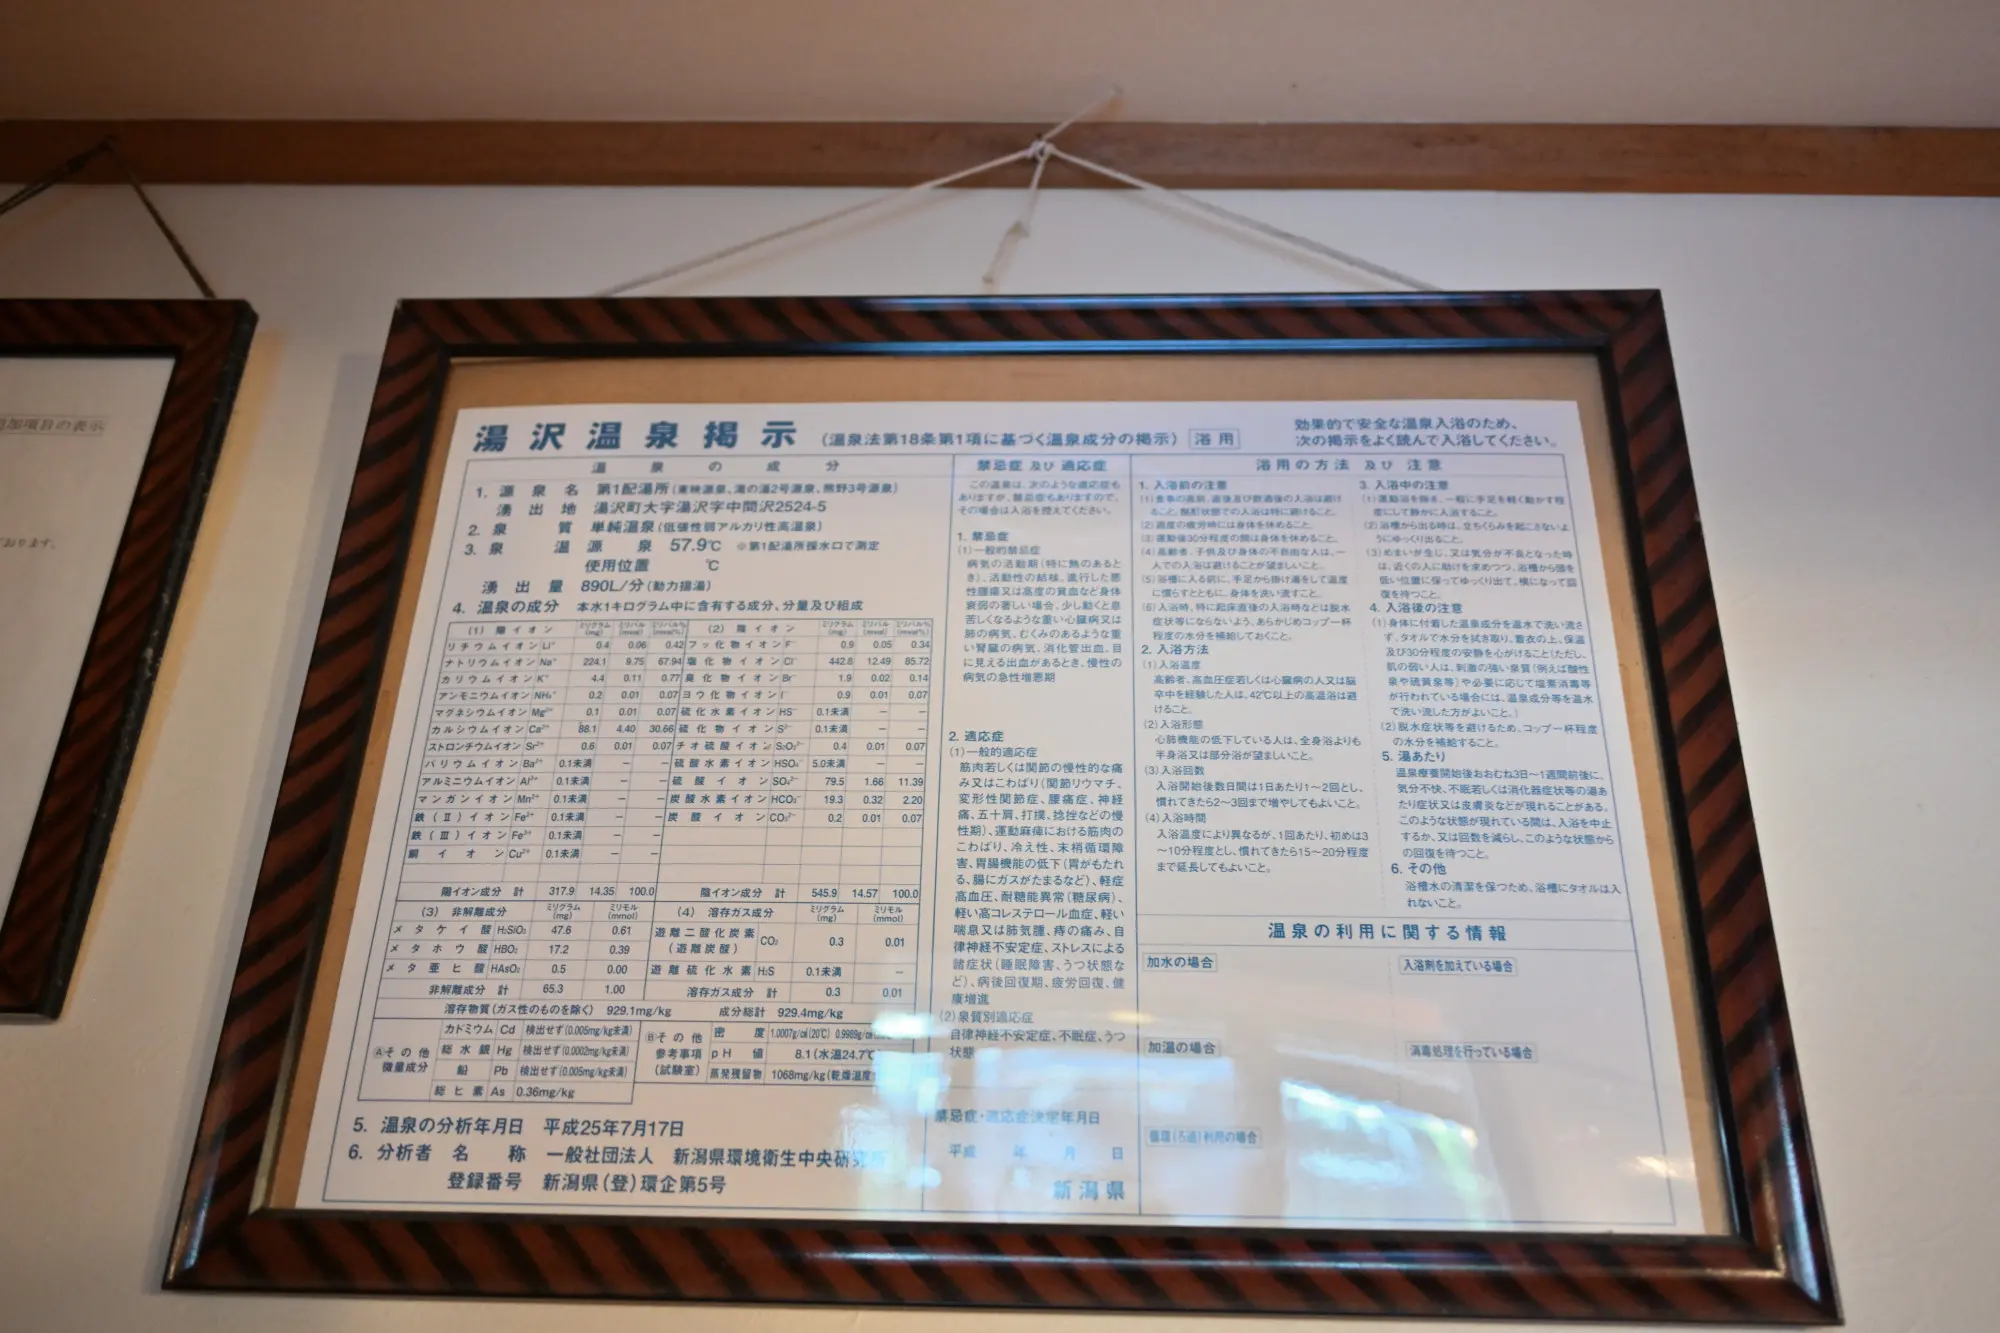 追加項目の表示
おります。
湯沢温泉掲示 (温泉法第18条第1項に基づく温泉成分の掲示) 浴用
効果的で安全な温泉入浴のため、
次の掲示をよく読んで入浴してください。
温泉の成分
1. 源泉名 第1配湯所(東映源泉、湯の沢2号源泉、熊野3号源泉)
湧出地 湯沢町大字湯沢字中間沢2524-5
2. 泉質 単純温泉(低張性弱アルカリ性高温泉)
3. 泉温 源泉 57.9℃ ※第1配湯所採水口で測定
使用位置 ℃
湧出量 890L/分(動力揚湯)
4. 温泉の成分 本水1キログラム中に含有する成分、分量及び組成
(1) 陽イオン ミリグラム(mg) ミリバル(mval) ミリバル%(mval%) (2) 陰イオン ミリグラム(mg) ミリバル(mval) ミリバル%(mval%)
リチウムイオン Li⁺ 0.4 0.06 0.42 フッ化物イオン F⁻ 0.9 0.05 0.34
ナトリウムイオン Na⁺ 224.1 9.75 67.94 塩化物イオン Cl⁻ 442.8 12.49 85.72
カリウムイオン K⁺ 4.4 0.11 0.77 臭化物イオン Br⁻ 1.9 0.02 0.14
アンモニウムイオン NH₄⁺ 0.2 0.01 0.07 ヨウ化物イオン I⁻ 0.9 0.01 0.07
マグネシウムイオン Mg²⁺ 0.1 0.01 0.07 硫化水素イオン HS⁻ 0.1未満 − −
カルシウムイオン Ca²⁺ 88.1 4.40 30.66 硫化イオン S²⁻ 0.1未満 − −
ストロンチウムイオン Sr²⁺ 0.6 0.01 0.07 チオ硫酸イオン S₂O₃²⁻ 0.4 0.01 0.07
バリウムイオン Ba²⁺ 0.1未満 − − 硫酸水素イオン HSO₄⁻ 5.0未満 − −
アルミニウムイオン Al³⁺ 0.1未満 − − 硫酸イオン SO₄²⁻ 79.5 1.66 11.39
マンガンイオン Mn²⁺ 0.1未満 − − 炭酸水素イオン HCO₃⁻ 19.3 0.32 2.20
鉄(Ⅱ)イオン Fe²⁺ 0.1未満 − − 炭酸イオン CO₃²⁻ 0.2 0.01 0.07
鉄(Ⅲ)イオン Fe³⁺ 0.1未満 − −
銅イオン Cu²⁺ 0.1未満 − −
陽イオン成分 計 317.9 14.35 100.0 陰イオン成分 計 545.9 14.57 100.0
(3) 非解離成分 ミリグラム(mg) ミリモル(mmol) (4) 溶存ガス成分 ミリグラム(mg) ミリモル(mmol)
メタケイ酸 H₂SiO₃ 47.6 0.61 遊離二酸化炭素(遊離炭酸) CO₂ 0.3 0.01
メタホウ酸 HBO₂ 17.2 0.39
メタ亜ヒ酸 HAsO₂ 0.5 0.00 遊離硫化水素 H₂S 0.1未満 −
非解離成分 計 65.3 1.00 溶存ガス成分 計 0.3 0.01
溶存物質(ガス性のものを除く) 929.1mg/kg 成分総計 929.4mg/kg
Ⓐその他微量成分
カドミウム Cd 検出せず(0.005mg/kg未満)
総水銀 Hg 検出せず(0.0002mg/kg未満)
鉛 Pb 検出せず(0.005mg/kg未満)
総ヒ素 As 0.36mg/kg
Ⓑその他参考事項(試験室)
密度 1.0007g/㎤(20℃) 0.9989g/㎤
pH値 8.1(水温24.7℃
蒸発残留物 1068mg/kg(乾燥温度
5. 温泉の分析年月日 平成25年7月17日
6. 分析者 名称 一般社団法人 新潟県環境衛生中央研究所
登録番号 新潟県(登)環企第5号
禁忌症及び適応症
この温泉は、次のような適応症も
ありますが、禁忌症もありますので、
その場合は入浴を控えてください。
1. 禁忌症
(1)一般的禁忌症
病気の活動期(特に熱のあると
き)、活動性の結核、進行した悪
性腫瘍又は高度の貧血など身体
衰弱の著しい場合、少し動くと息
苦しくなるような重い心臓病又は
肺の病気、むくみのあるような重
い腎臓の病気、消化管出血、目
に見える出血があるとき、慢性の
病気の急性増悪期
2. 適応症
(1)一般的適応症
筋肉若しくは関節の慢性的な痛
み又はこわばり(関節リウマチ、
変形性関節症、腰痛症、神経
痛、五十肩、打撲、捻挫などの慢
性期)、運動麻痺における筋肉の
こわばり、冷え性、末梢循環障
害、胃腸機能の低下(胃がもたれ
る、腸にガスがたまるなど)、軽症
高血圧、耐糖能異常(糖尿病)、
軽い高コレステロール血症、軽い
喘息又は肺気腫、痔の痛み、自
律神経不安定症、ストレスによる
諸症状(睡眠障害、うつ状態な
ど)、病後回復期、疲労回復、健
康増進
(2)泉質別適応症
自律神経不安定症、不眠症、うつ
状態
禁忌症・適応症決定年月日
平成 年 月 日
新潟県
浴用の方法及び注意
1. 入浴前の注意
(1)食事の直前、直後及び飲酒後の入浴は避け
ること。酩酊状態での入浴は特に避けること。
(2)過度の疲労時には身体を休めること。
(3)運動後30分程度の間は身体を休めること。
(4)高齢者、子供及び身体の不自由な人は、一
人での入浴は避けることが望ましいこと。
(5)浴槽に入る前に、手足から掛け湯をして温度
に慣らすとともに、身体を洗い流すこと。
(6)入浴時、特に起床直後の入浴時などは脱水
症状等にならないよう、あらかじめコップ一杯
程度の水分を補給しておくこと。
2. 入浴方法
(1)入浴温度
高齢者、高血圧症若しくは心臓病の人又は脳
卒中を経験した人は、42℃以上の高温浴は避
けること。
(2)入浴形態
心肺機能の低下している人は、全身浴よりも
半身浴又は部分浴が望ましいこと。
(3)入浴回数
入浴開始後数日間は1日あたり1〜2回とし、
慣れてきたら2〜3回まで増やしてもよいこと。
(4)入浴時間
入浴温度により異なるが、1回あたり、初めは3
〜10分程度とし、慣れてきたら15〜20分程度
まで延長してもよいこと。
3. 入浴中の注意
(1)運動浴を除き、一般に手足を軽く動かす程
度にして静かに入浴すること。
(2)浴槽から出る時は、立ちくらみを起こさないよ
うにゆっくり出ること。
(3)めまいが生じ、又は気分が不良となった時
は、近くの人に助けを求めつつ、浴槽から頭を
低い位置に保ってゆっくり出て、横になって回
復を待つこと。
4. 入浴後の注意
(1)身体に付着した温泉成分を温水で洗い流さ
ず、タオルで水分を拭き取り、着衣の上、保温
及び30分程度の安静を心がけること(ただし、
肌の弱い人は、刺激の強い泉質(例えば酸性
泉や硫黄泉等)や必要に応じて塩素消毒等
が行われている場合には、温泉成分等を温水
で洗い流した方がよいこと。)
(2)脱水症状等を避けるため、コップ一杯程度
の水分を補給すること。
5. 湯あたり
温泉療養開始後おおむね3日〜1週間前後に、
気分不快、不眠若しくは消化器症状等の湯あ
たり症状又は皮膚炎などが現れることがある。
このような状態が現れている間は、入浴を中止
するか、又は回数を減らし、このような状態から
の回復を待つこと。
6. その他
浴槽水の清潔を保つため、浴槽にタオルは入
れないこと。
温泉の利用に関する情報
加水の場合
入浴剤を加えている場合
加温の場合
消毒処理を行っている場合
循環(ろ過)利用の場合